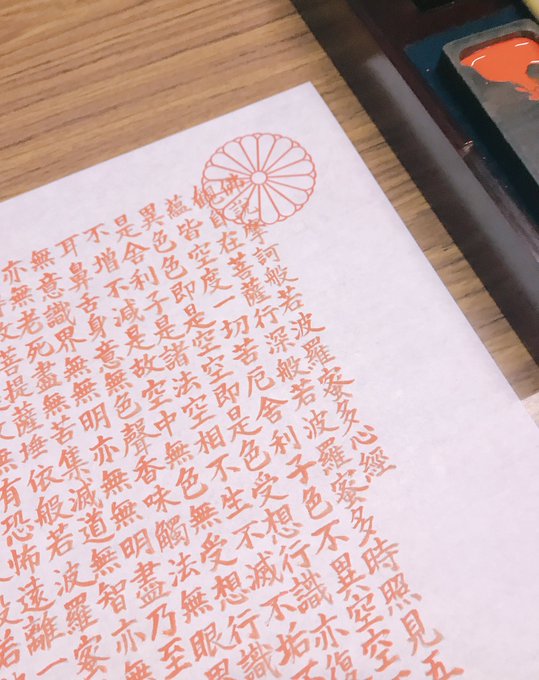 佛説摩訶般若波羅蜜多心經
觀自在菩薩行深般若波羅蜜多時照見五
蘊皆空度一切苦厄舍利子色不異空空不
異色色即是空空即是色受想行識亦復
是舍利子是諸法空相不生不滅不垢不
不增不減是故空中無色無受想行識
耳鼻舌身意無色聲香味觸法無眼界
無意識界無無明亦無無明盡乃至
亦無老死盡無苦集滅道無智亦無
故菩提薩埵依般若波羅蜜
無有恐怖遠離一